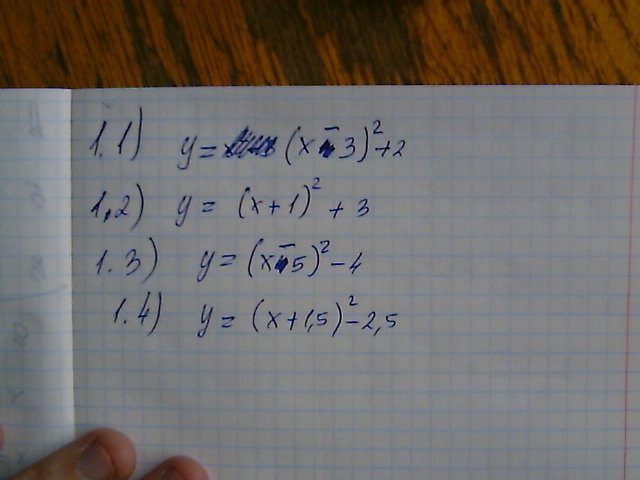 1.1) y = (x - 3)² + 2
1.2) y = (x + 1)² + 3
1.3) y = (x - 5)² - 4
1.4) y = (x + 1,5)² - 2,5